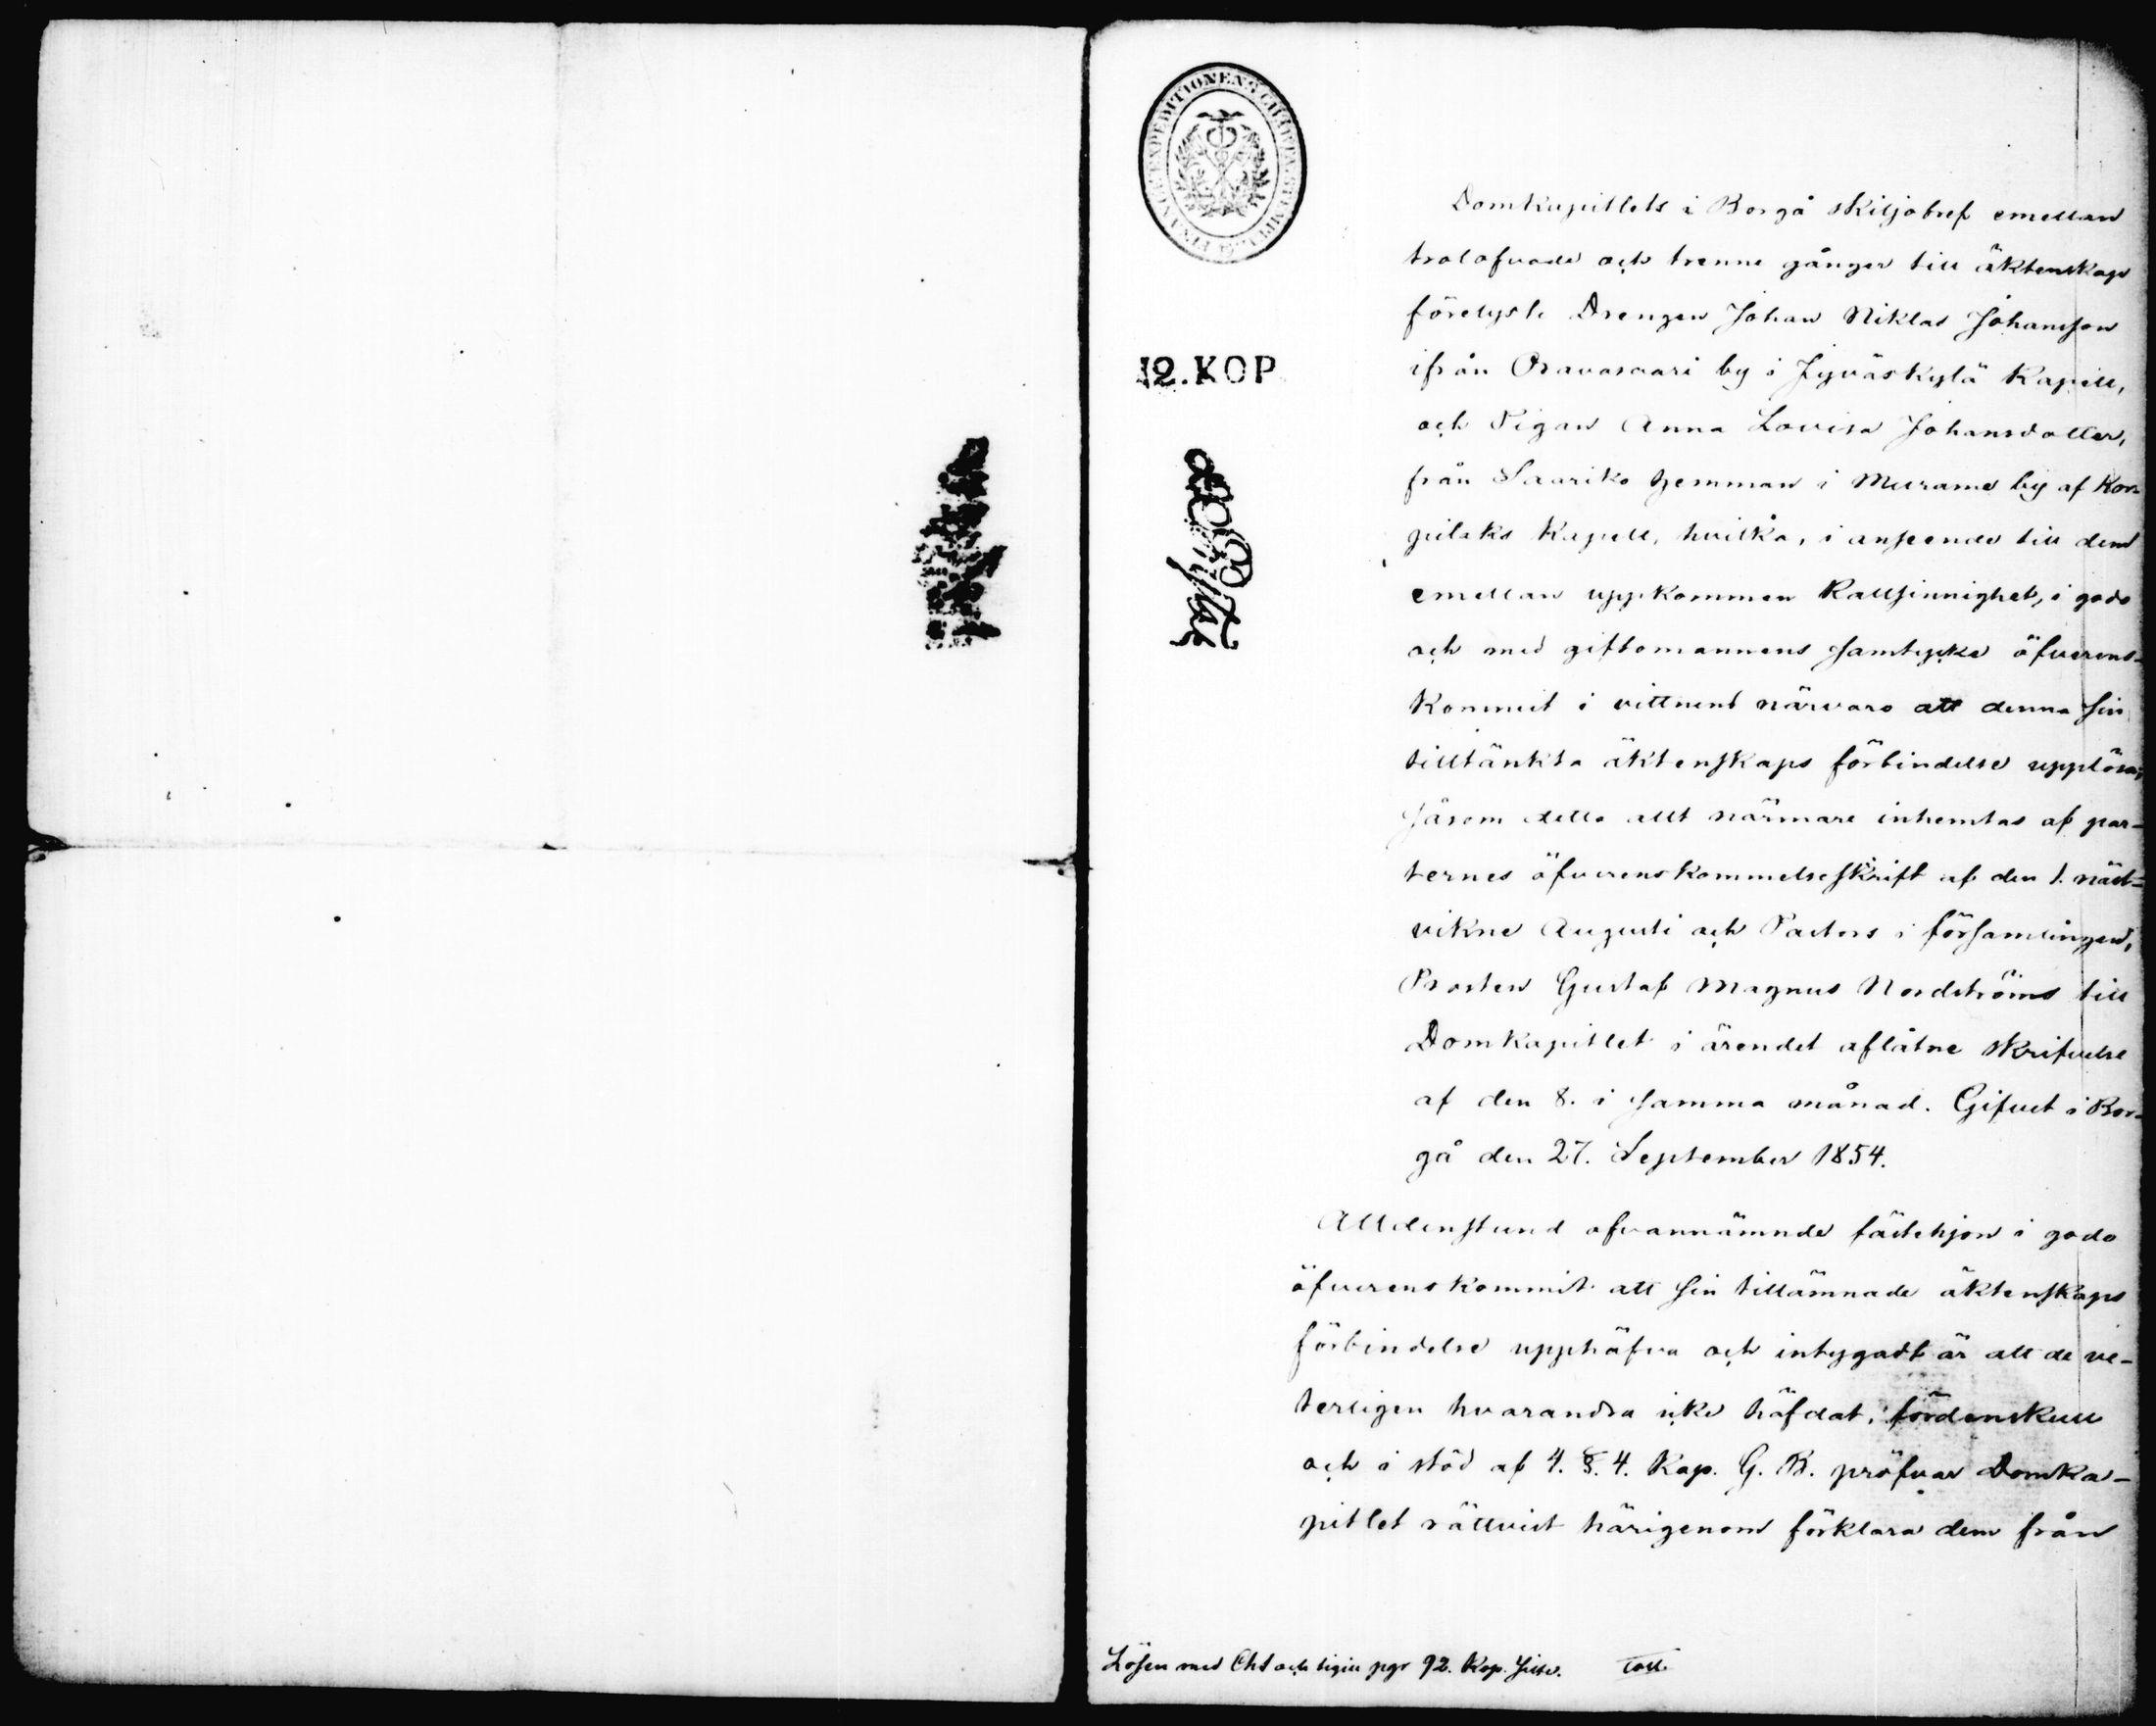 FINANCE EXPEDITIONENS CHARTA
12. KOP
Domkapitlets i Borgå skiljobref emellan
trolofvade och trenne gånger till äktenskap
förelyste Drengen Johan Niklas Johansson
ifrån Oravasaari by i Jyväskylä Kapell,
och Pigan Anna Lovisa Johansdotter,
från Saariko hemman i Murame by af Kor-
pilaks Kapell, hvilka, i anseende till dem
emellan uppkommen Kallsinnighet, i godo
och med giftomannens samtycke öfverens-
kommit i vittnens närvaro att denna sin
tilltänkta äktenskaps förbindelse upplösa,
såsom detta allt närmare inhemtas af par-
ternes öfverenskommelseskrift af den 1. näst-
vikne Augusti och Pastors i församlingen,
Prosten Gustaf Magnus Nordströms till
Domkapitlet i ärendet aflåtne skrifvelse
af den 8. i samma månad. Gifvet i Bor-
gå den 27. September 1854.
Alldenstund ofvannämnde fästehjon i godo
öfverenskommit att sin tillämnade äktenskaps
förbindelse upphäfva och intygadt är att de ve-
terligen hvarandra icke häfdat, fördenskull
och i stöd af 4. §. 4. Kap. G. B. pröfvar Domka-
pitlet rättvist härigenom förklara dem från
Lösen med Cht och sigill pgr 92. Kop. Silfv.